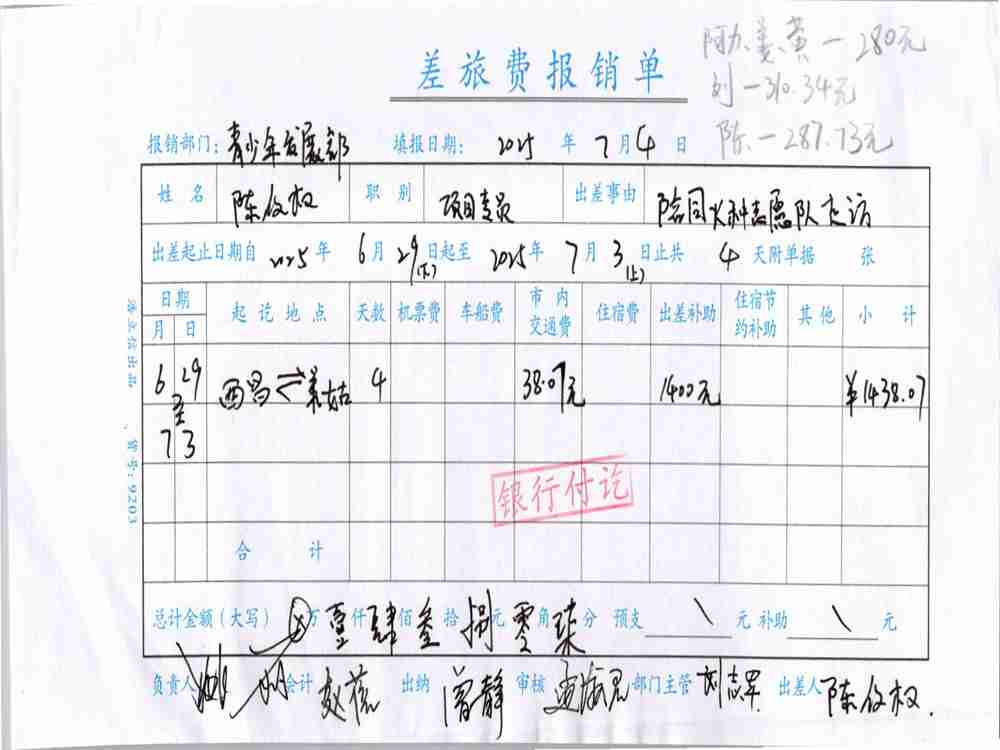 差旅费报销单
阿力、姜、黄一280元
刘一310.34元
陈.一287.73元
报销部门：青少年发展部 填报日期：2025年7月4日
姓名 陈 权 职别 项目专员 出差事由 陪同 志愿队走访
出差起止日期自2025年6月29日起至2025年7月3日止共4天附单据 张
(下) (上)
日期 起讫地点 天数 机票费 车船费 市内交通费 住宿费 出差补助 住宿节约补助 其他 小计
月 日
6 29 西昌⇌美姑 4 38.07元 1400元 ¥1438.07
至
7 3
银行付讫
合计
总计金额（大写）⊗万壹仟肆佰叁拾捌元零角柒分 预支 \ 元 补助 \ 元
负责人 会计 赵 出纳 曾静 审核 部门主管 刘志军 出差人 陈 权.
出品 货号：9203